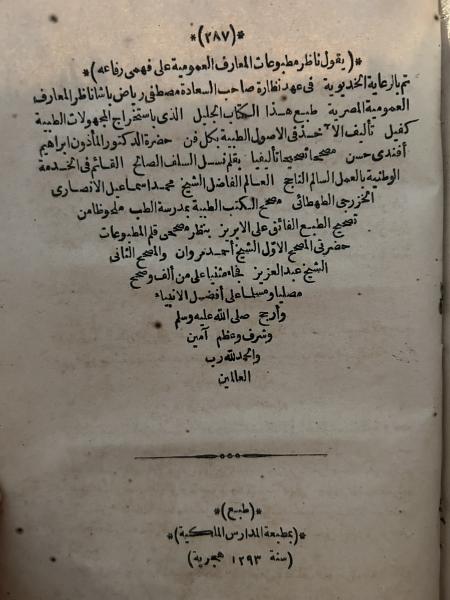 *(٢٨٧)*
*( يقول ناظر مطبوعات المعارف العمومية على فهمى رفاعه )*
تم بالرعاية الخديوية فى عهد نظارة صاحب السعادة مصطفى رياض باشا ناظر المعارف
العمومية المصرية طبع هذا الكتاب الجليل الذى باستخراج المجهولات الطبية
كفيل تأليف الآخذ فى الاصول الطبية بكل فن حضرة الدكتور المأذون ابراهيم
أفندى حسن مصححا تصحيحا تأليفيا بقلم نسل السلف الصالح القائم فى الخدمة
الوطنية بالعمل السالم الناجح العالم الفاضل الشيخ محمد اسماعيل الانصارى
الخزرجى الطهطائى مصحح الكتب الطبية بمدرسة الطب ملحوظا من
تصحيح الطبع الفائق على الابريز بنظر مصححى قلم المطبوعات
حضرتى المصحح الاول الشيخ أحمد مروان والمصحح الثانى
الشيخ عبد العزيز فجاء مثنيا على من ألف وصحح
مصليا ومسلما على أفضل الانبياء
وأرجح صلى الله عليه وسلم
وشرف وعظم آمين
والحمد لله رب
العالمين
*( طبع )*
*( بمطبعة المدارس الملكية )*
( سنة ١٢٩٣ هجرية )